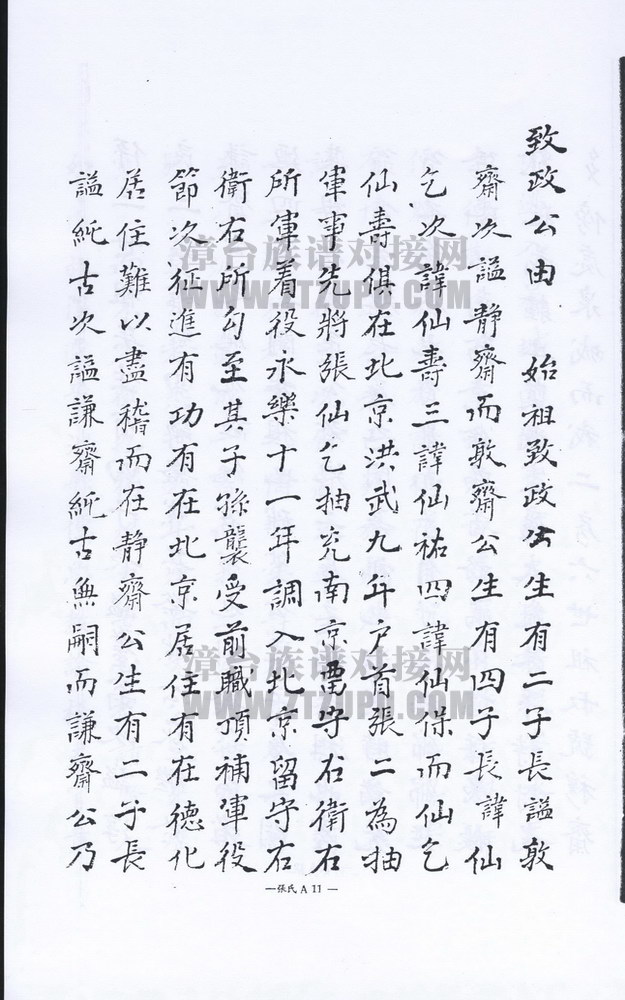 致政公由　始祖致政公生有二子長謚敦
齋次謚靜齋而敦齋公生有四子長諱仙
乞次諱仙壽三諱仙祐四諱仙保而仙乞
仙壽俱在北京洪武九年戶首張二為抽
軍事先將張仙乞抽充南京畱守右衛右
所軍着役永樂十一年調入北京留守右
衛右所勾至其子孫襲受前職頂補軍役
節次征進有功有在北京居住有在德化
居住難以盡稽而在靜齋公生有二子長
謚純古次謚謙齋純古無嗣而謙齋公乃
—張氏 A 11 —
漳台族谱对接网
WWW.ZTZUPU.COM
漳台族谱对接网
WWW.ZTZUPU.COM